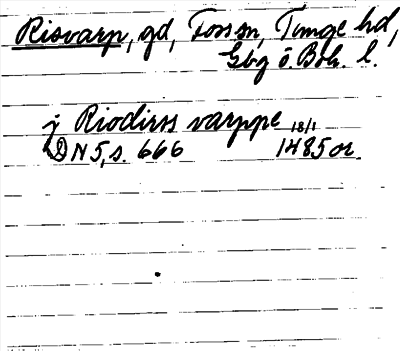 Risvarp, gd, Foss sn, Tunge hd,
Gbg o. Boh. l.
j Riodirss varppe 18/1
DN 5, s. 666 1485 or.